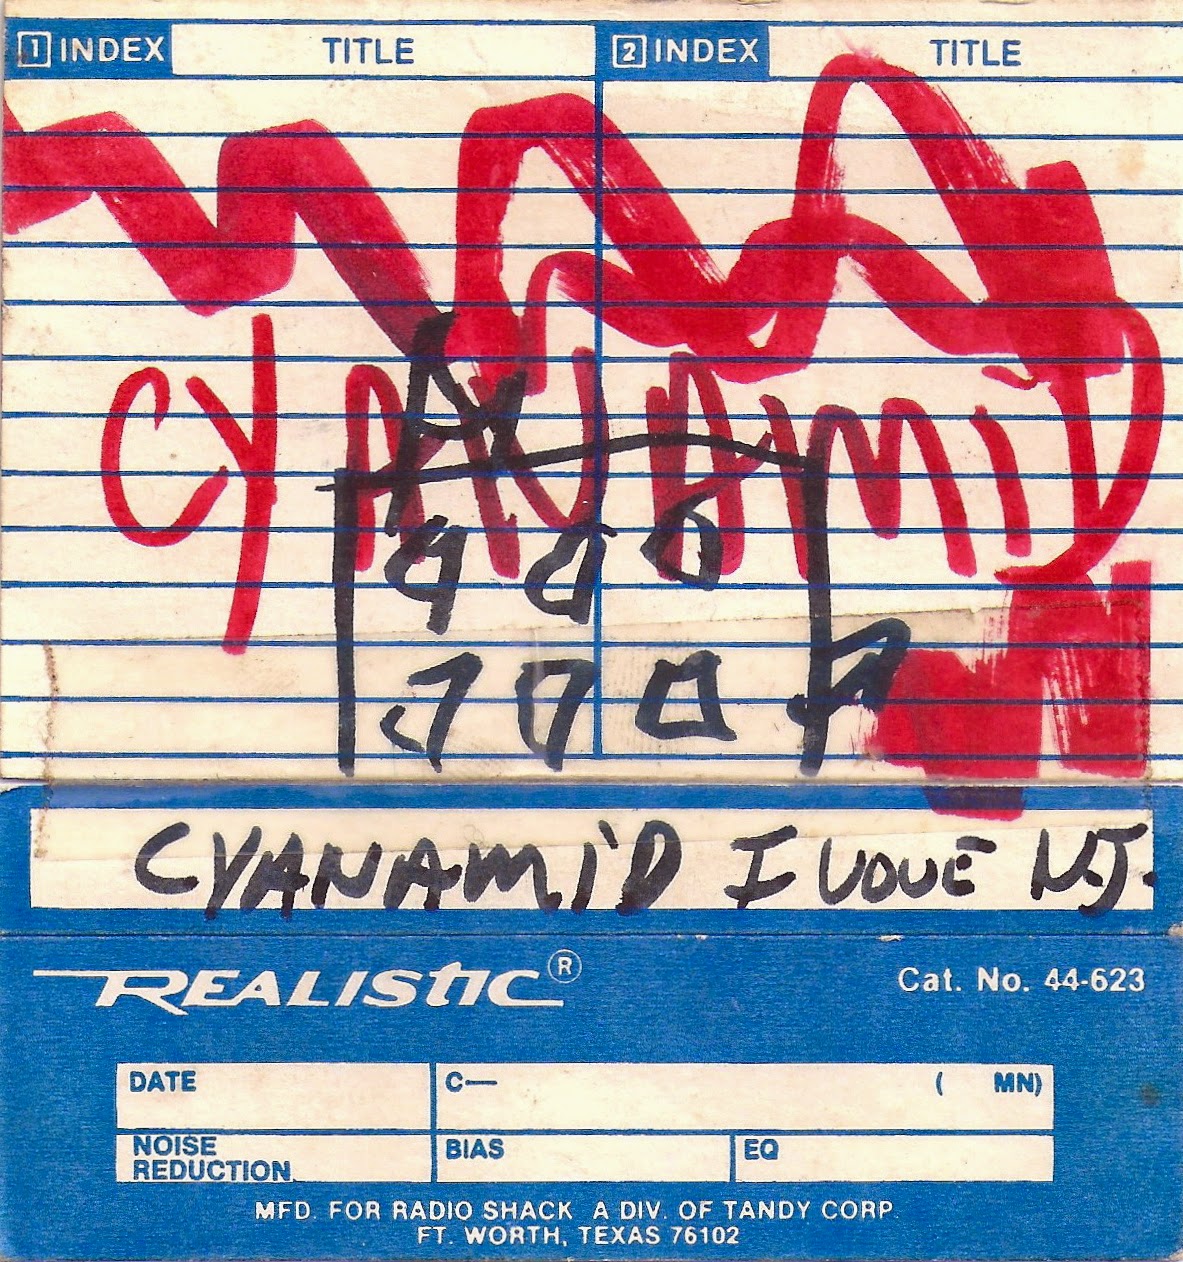 1 INDEX TITLE 2 INDEX TITLE
CYANAMID
CYANAMID I LOVE N.J.
REALISTIC®
Cat. No. 44-623
DATE C— ( MN)
NOISE REDUCTION BIAS EQ
MFD. FOR RADIO SHACK A DIV. OF TANDY CORP.
FT. WORTH, TEXAS 76102